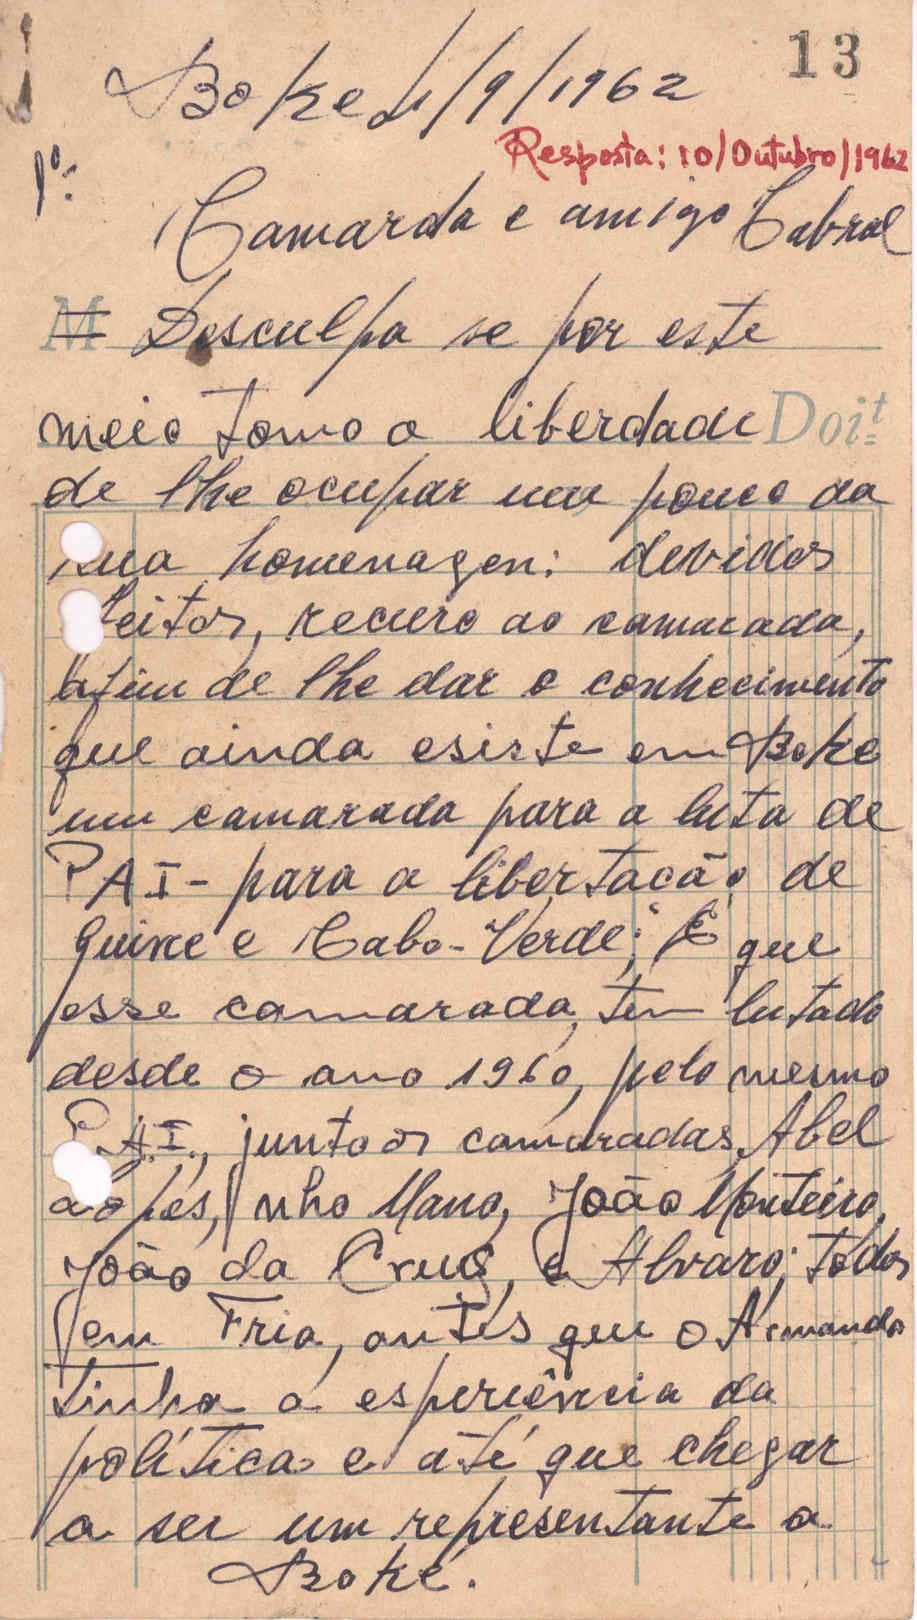 13
Boke 21/9/1962
Resposta: 10/Outubro/1962
1º:
Camarda e amigo Cabral
M Desculpa se por este
meio tomo a liberdade Doit
de lhe ocupar um pouco da
sua homenagen: devidos
feitos, recuro ao camarada,
afim de lhe dar o conhecimento
que ainda esiste em Boke
um camarada para a luta de
PAI- para a libertacão de
Guine e Cabo-Verde; É que
esse camarada, tem lutado
desde o ano 1960, pelo mesmo
P.A.I., junto os camaradas, Abel
Lopes, nho Mano, João Monteiro,
João da Cruz, e Alvaro; todos
em Fria, antes que o Armando
tinha a esperiência da
política e até que chegar
a ser um representante a
Boké.